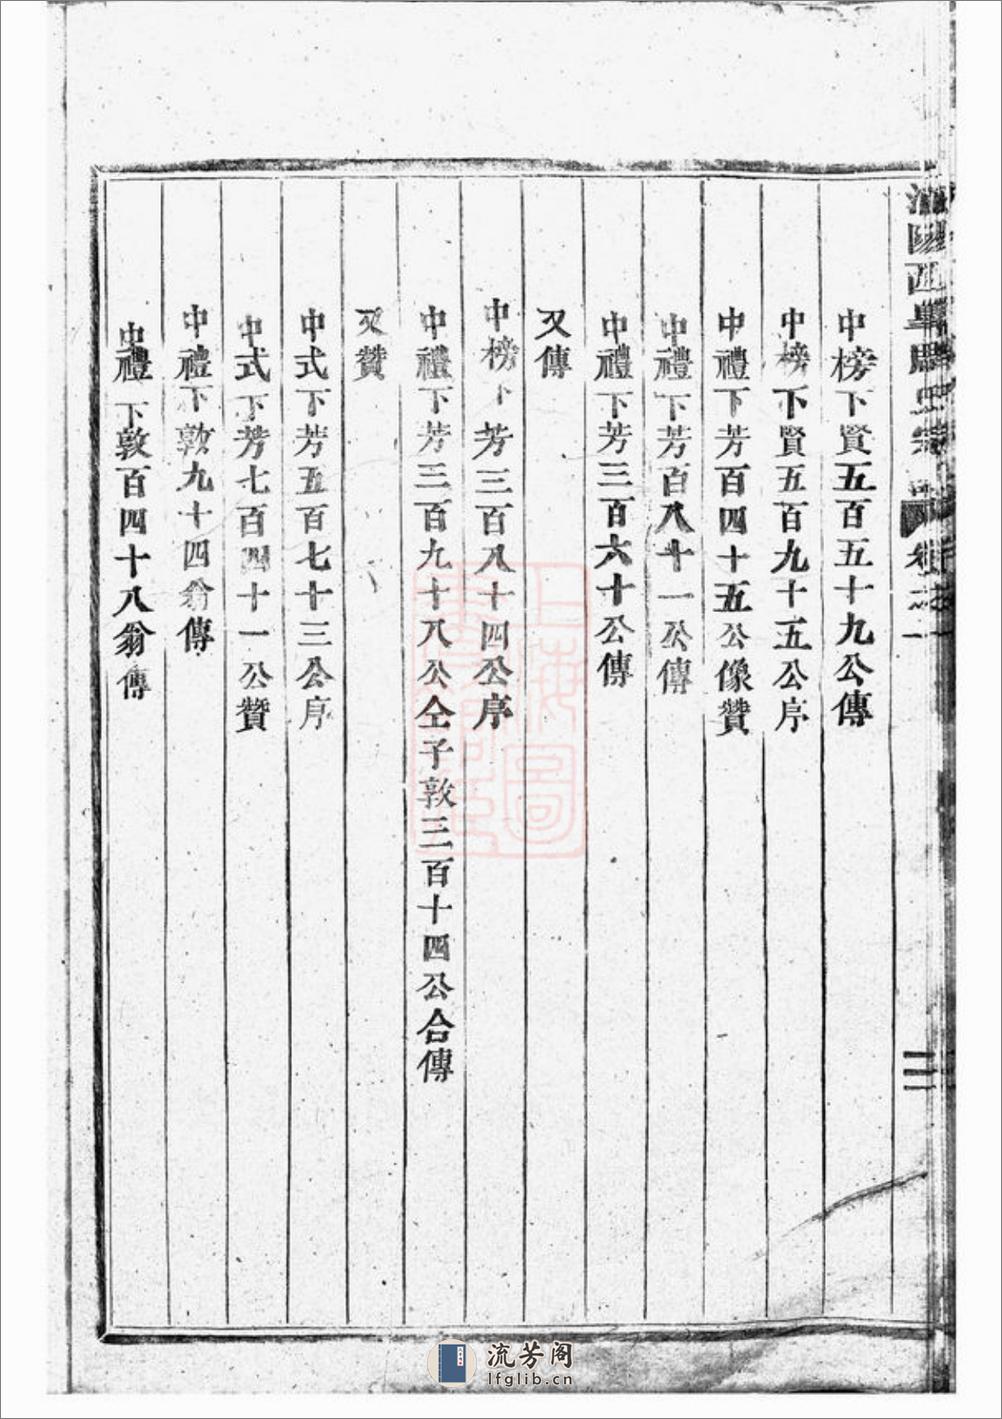 卷之一
中榜下賢五百五十九公傳
中榜下賢五百九十五公序
中禮下芳百四十五公像贊
中禮下芳百八十一公傳
中禮下芳三百六十公傳
又傳
中榜下芳三百八十四公序
中禮下芳三百九十八公仝子敦三百十四公合傳
又贊
中式下芳五百七十三公序
中式下芳七百四十一公贊
中禮下敦九十四翁傳
中禮下敦百四十八翁傳
上海圖書館藏
流芳阁
lfglib.cn